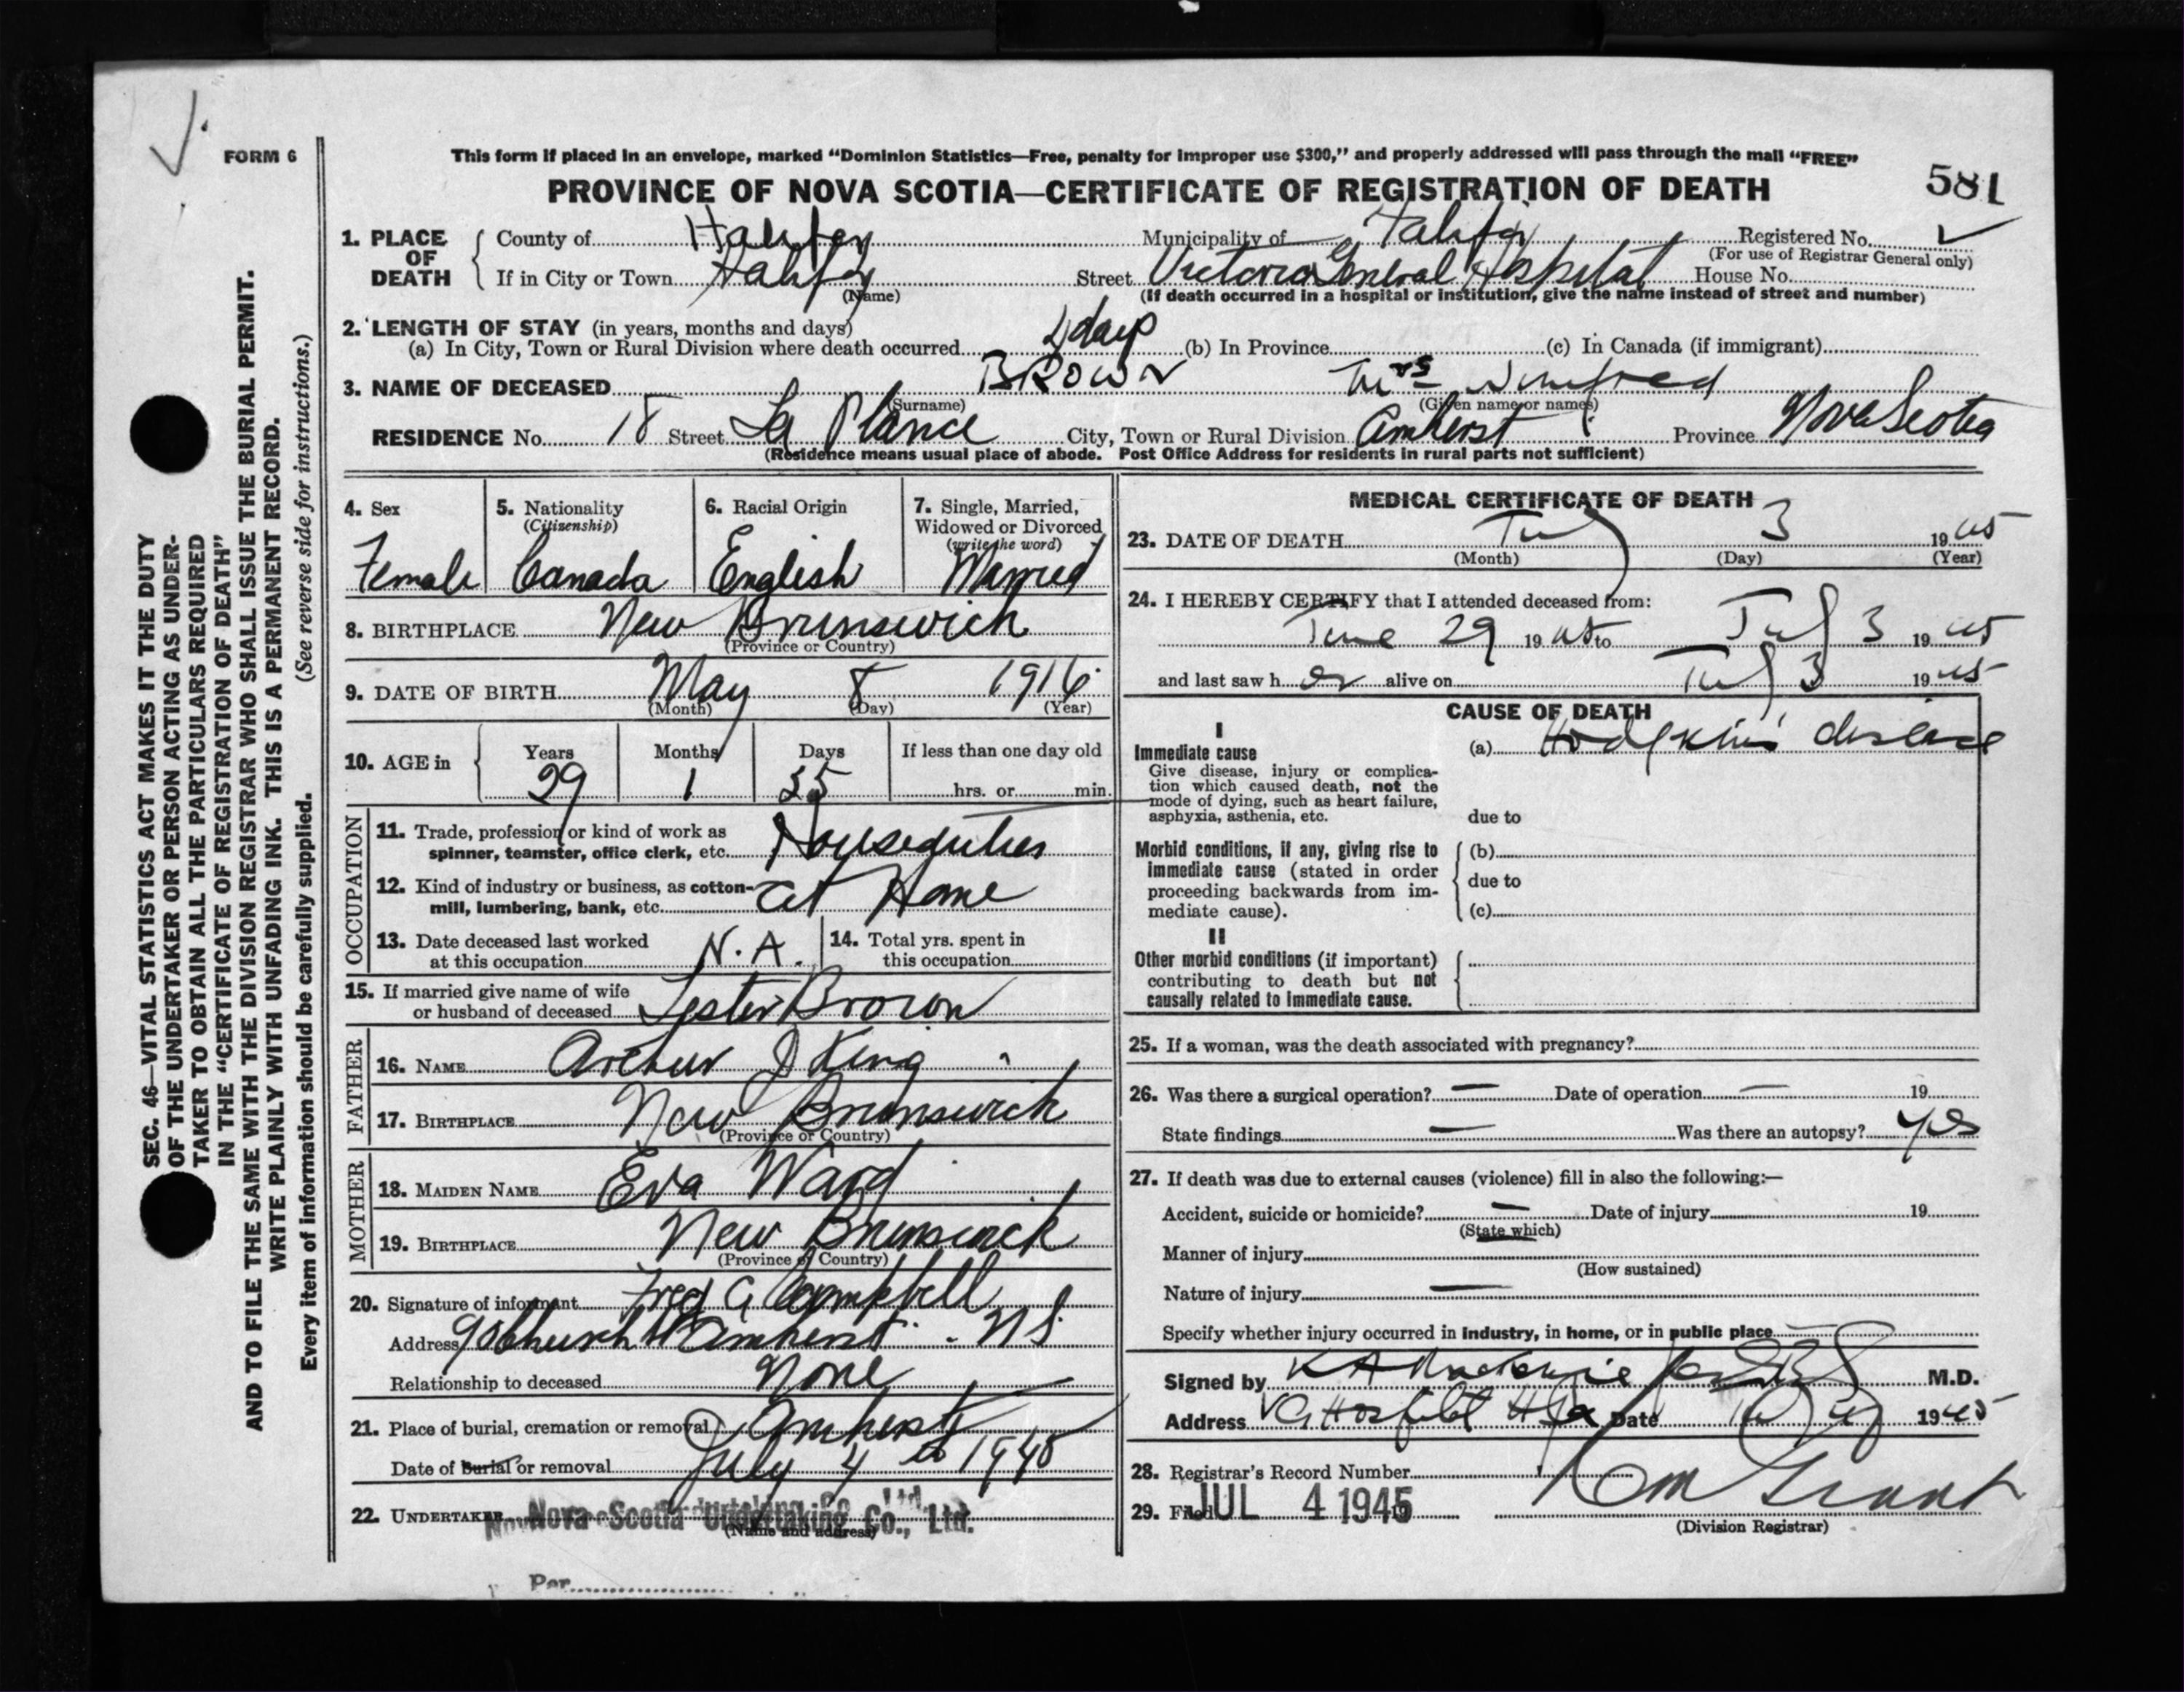 FORM 6
This form if placed in an envelope, marked “Dominion Statistics—Free, penalty for improper use $300,” and properly addressed will pass through the mail “FREE”
PROVINCE OF NOVA SCOTIA—CERTIFICATE OF REGISTRATION OF DEATH
581
1. PLACE OF DEATH County of Halifax Municipality of Halifax Registered No.
(For use of Registrar General only)
If in City or Town Halifax Street Victoria General Hospital House No.
(Name) (If death occurred in a hospital or institution, give the name instead of street and number)
2. LENGTH OF STAY (in years, months and days)
(a) In City, Town or Rural Division where death occurred 4 days (b) In Province (c) In Canada (if immigrant)
3. NAME OF DECEASED BROWN Mrs Winifred
(Surname) (Given name or names)
RESIDENCE No. 18 Street La Plance City, Town or Rural Division Amherst Province Nova Scotia
(Residence means usual place of abode. Post Office Address for residents in rural parts not sufficient)
4. Sex Female
5. Nationality (Citizenship) Canada
6. Racial Origin English
7. Single, Married, Widowed or Divorced (write the word) Married
8. BIRTHPLACE New Brunswick
(Province or Country)
9. DATE OF BIRTH May 8 1916
(Month) (Day) (Year)
10. AGE in Years Months Days If less than one day old
29 1 25 hrs. or min.
OCCUPATION
11. Trade, profession or kind of work as
spinner, teamster, office clerk, etc. Houseduties
12. Kind of industry or business, as cotton-
mill, lumbering, bank, etc. At Home
13. Date deceased last worked
at this occupation N.A.
14. Total yrs. spent in
this occupation
15. If married give name of wife
or husband of deceased Lester Brown
FATHER
16. NAME Arthur J King
17. BIRTHPLACE New Brunswick
(Province or Country)
MOTHER
18. MAIDEN NAME Eva Ward
19. BIRTHPLACE New Brunswick
(Province or Country)
20. Signature of informant Fred G Campbell
Address 90 Church St Amherst. N.S.
Relationship to deceased None
21. Place of burial, cremation or removal Amherst
Date of burial or removal July 4th 1945
22. UNDERTAKER Nova Scotia Undertaking Co., Ltd.
(Name and address)
Per
MEDICAL CERTIFICATE OF DEATH
23. DATE OF DEATH July 3 1945
(Month) (Day) (Year)
24. I HEREBY CERTIFY that I attended deceased from:
June 29 1945 to July 3 1945
and last saw her alive on July 3 1945
CAUSE OF DEATH
I
Immediate cause (a) Hodgkin's disease
Give disease, injury or complica-
tion which caused death, not the
mode of dying, such as heart failure,
asphyxia, asthenia, etc. due to
Morbid conditions, if any, giving rise to (b)
immediate cause (stated in order
proceeding backwards from im- due to
mediate cause). (c)
II
Other morbid conditions (if important)
contributing to death but not
causally related to immediate cause.
25. If a woman, was the death associated with pregnancy?
26. Was there a surgical operation? — Date of operation — 19
State findings — Was there an autopsy? yes
27. If death was due to external causes (violence) fill in also the following:—
Accident, suicide or homicide? — Date of injury 19
(State which)
Manner of injury
(How sustained)
Nature of injury —
Specify whether injury occurred in industry, in home, or in public place
Signed by K A MacKenzie M.D.
Address V G Hospital Hfx Date July 4 1945
28. Registrar's Record Number
29. Filed JUL 4 1945 19
Grant
(Division Registrar)
SEC. 46—VITAL STATISTICS ACT MAKES IT THE DUTY
OF THE UNDERTAKER OR PERSON ACTING AS UNDER-
TAKER TO OBTAIN ALL THE PARTICULARS REQUIRED
IN THE “CERTIFICATE OF REGISTRATION OF DEATH”
AND TO FILE THE SAME WITH THE DIVISION REGISTRAR WHO SHALL ISSUE THE BURIAL PERMIT.
WRITE PLAINLY WITH UNFADING INK. THIS IS A PERMANENT RECORD.
Every item of information should be carefully supplied. (See reverse side for instructions.)